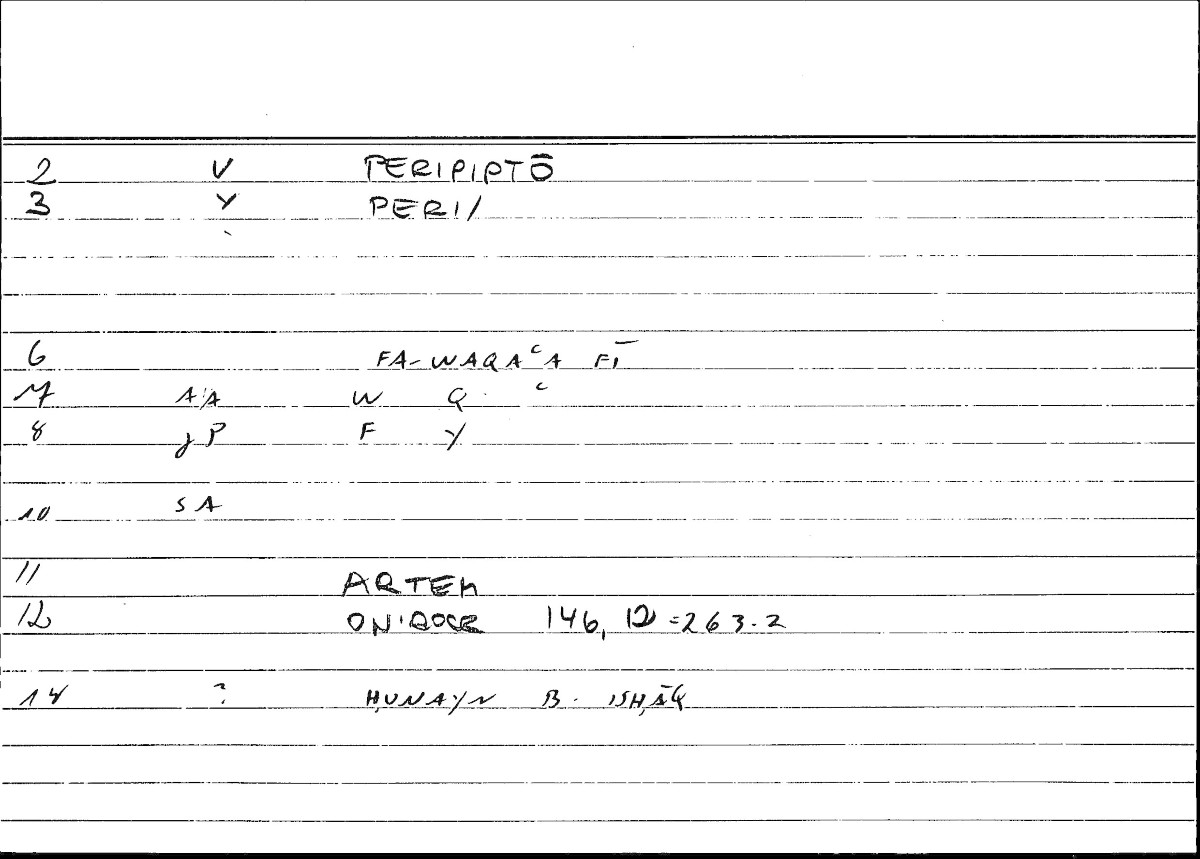 2 V PERIPIPTŌ
3 Y PERI/
6 FA-WAQAʿA FĪ
7 AA W Q ʿ
8 JP F Y
10 SA
11 ARTEM
12 ONIROCR 146, 12 = 263.2
14 ? ḤUNAYN B. ISḤĀQ